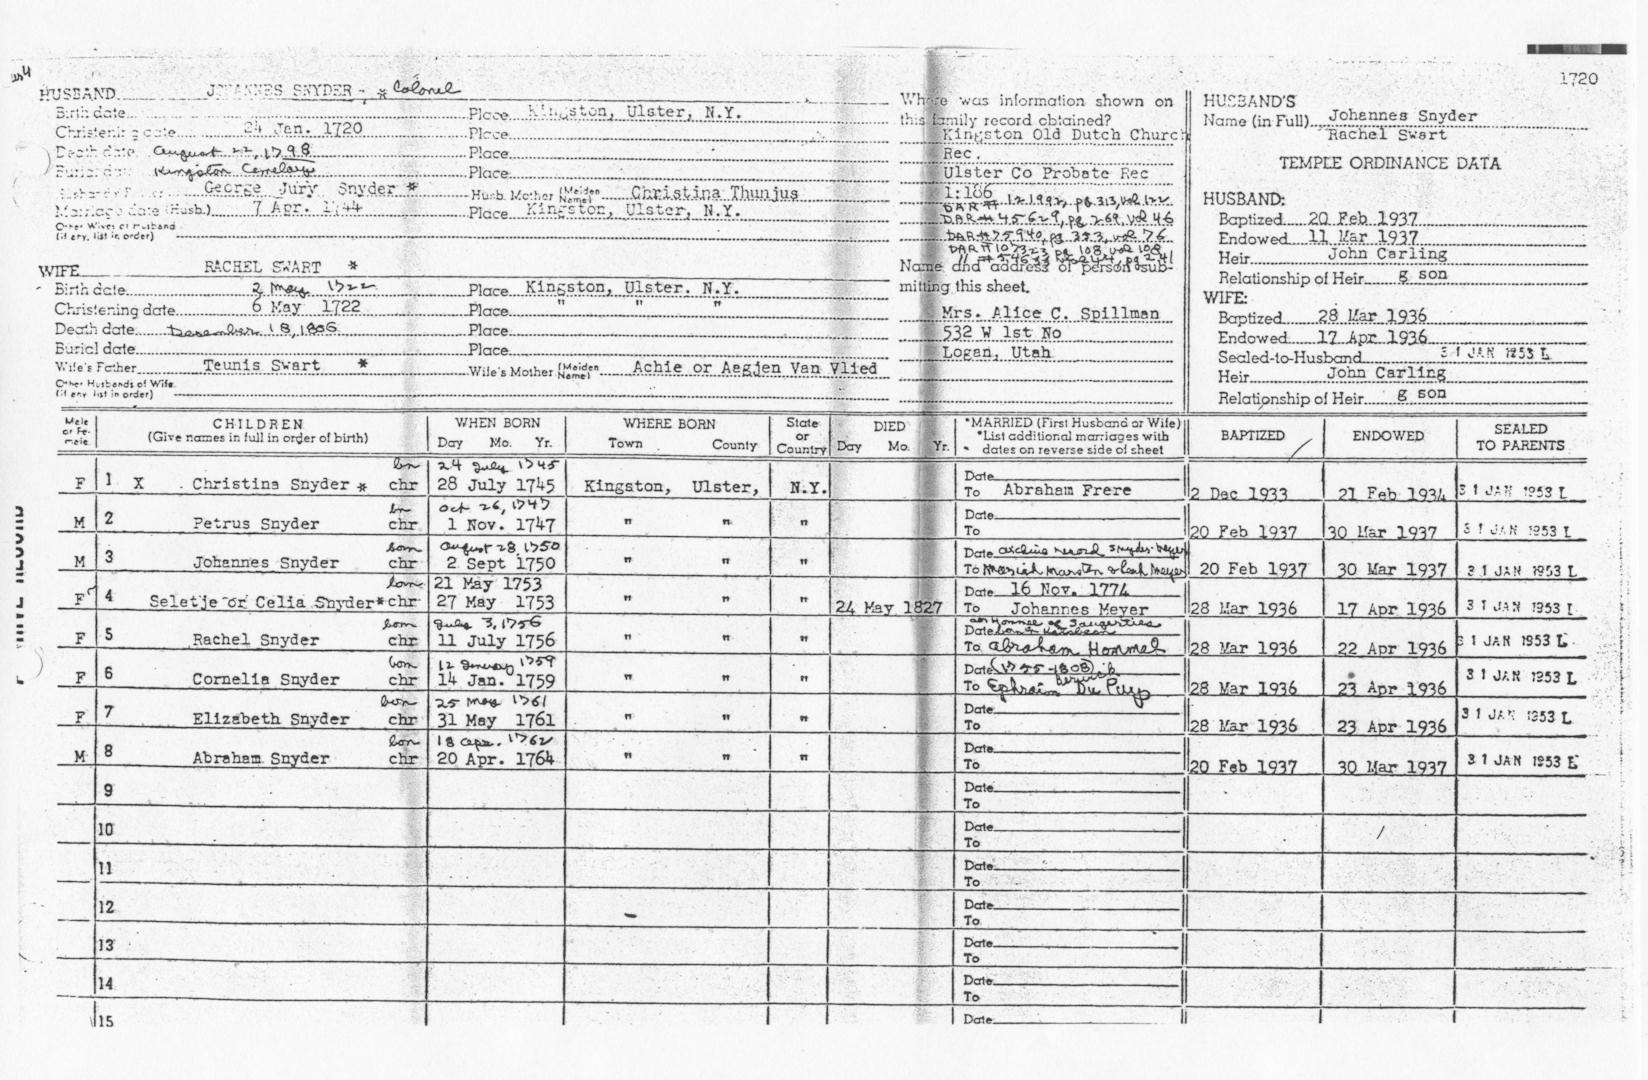 1720
HUSBAND JOHANNES SNYDER - * Colonel
Birth date Place Kingston, Ulster, N.Y.
Christening date 24 Jan. 1720 Place
Death date August 22, 1798 Place
Burial date Kingston Cemetary Place
George Jury Snyder * Husb. Mother (Maiden Name) Christina Thunjus
Marriage date (Husb.) 7 Apr. 1744 Place Kingston, Ulster, N.Y.
Other Wives of Husband
(if any, list in order)
WIFE RACHEL SWART *
Birth date 2 May 1722 Place Kingston, Ulster. N.Y.
Christening date 6 May 1722 Place " " "
Death date December 18, 1806 Place
Burial date Place
Wife's Father Teunis Swart * Wife's Mother (Maiden Name) Achie or Aegjen Van Vlied
Other Husbands of Wife
(if any list in order)
Where was information shown on
this family record obtained?
Kingston Old Dutch Church
Rec.
Ulster Co Probate Rec
1:186
DAR # 121992, pg 313, vol 122
DAR # 45629, pg 269, vol 46
DAR # 75940, pg 353, vol 76
DAR # 107323 pg 108, vol 108
Name and address of person sub-
mitting this sheet.
Mrs. Alice C. Spillman
532 W 1st No
Logan, Utah
HUSBAND'S
Name (in Full) Johannes Snyder
Rachel Swart
TEMPLE ORDINANCE DATA
HUSBAND:
Baptized 20 Feb 1937
Endowed 11 Mar 1937
Heir John Carling
Relationship of Heir g son
WIFE:
Baptized 28 Mar 1936
Endowed 17 Apr 1936
Sealed-to-Husband 31 JAN 1953 L
Heir John Carling
Relationship of Heir g son
Male or Female CHILDREN (Give names in full in order of birth) WHEN BORN Day Mo. Yr. WHERE BORN Town County State or Country DIED Day Mo. Yr. *MARRIED (First Husband or Wife) *List additional marriages with dates on reverse side of sheet BAPTIZED ENDOWED SEALED TO PARENTS
bn 24 July 1745 Date
F 1 X Christina Snyder * chr 28 July 1745 Kingston, Ulster, N.Y. To Abraham Frere 2 Dec 1933 21 Feb 1934 31 JAN 1953 L
bn Oct 26, 1747 Date
M 2 Petrus Snyder chr 1 Nov. 1747 " " " To 20 Feb 1937 30 Mar 1937 31 JAN 1953 L
born August 28, 1750 Date archive record Snyder-Meyer
M 3 Johannes Snyder chr 2 Sept 1750 " " " To 20 Feb 1937 30 Mar 1937 31 JAN 1953 L
born 21 May 1753 Date 16 Nov. 1774
F 4 Seletje or Celia Snyder * chr 27 May 1753 " " " 24 May 1827 To Johannes Meyer 28 Mar 1936 17 Apr 1936 31 JAN 1953 L
born July 3, 1756 Date
F 5 Rachel Snyder chr 11 July 1756 " " " To Abraham Hommel 28 Mar 1936 22 Apr 1936 31 JAN 1953 L
born 12 January 1759 Date (1755-1808)
F 6 Cornelia Snyder chr 14 Jan. 1759 " " " To Ephraim Du Puy 28 Mar 1936 23 Apr 1936 31 JAN 1953 L
born 25 May 1761 Date
F 7 Elizabeth Snyder chr 31 May 1761 " " " To 28 Mar 1936 23 Apr 1936 31 JAN 1953 L
born 18 Apr. 1762 Date
M 8 Abraham Snyder chr 20 Apr. 1764 " " " To 20 Feb 1937 30 Mar 1937 31 JAN 1953 L
9 Date
To
10 Date
To
11 Date
To
12 Date
To
13 Date
To
14 Date
To
15 Date